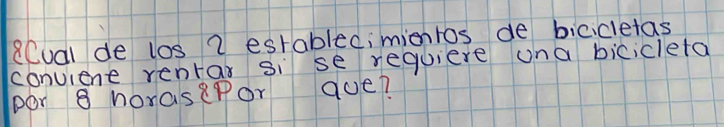 ¿Cual de los 2 establecimientos de bicicletas
conviene rentar si se requiere una bicicleta
por 8 horas ¿Por que?